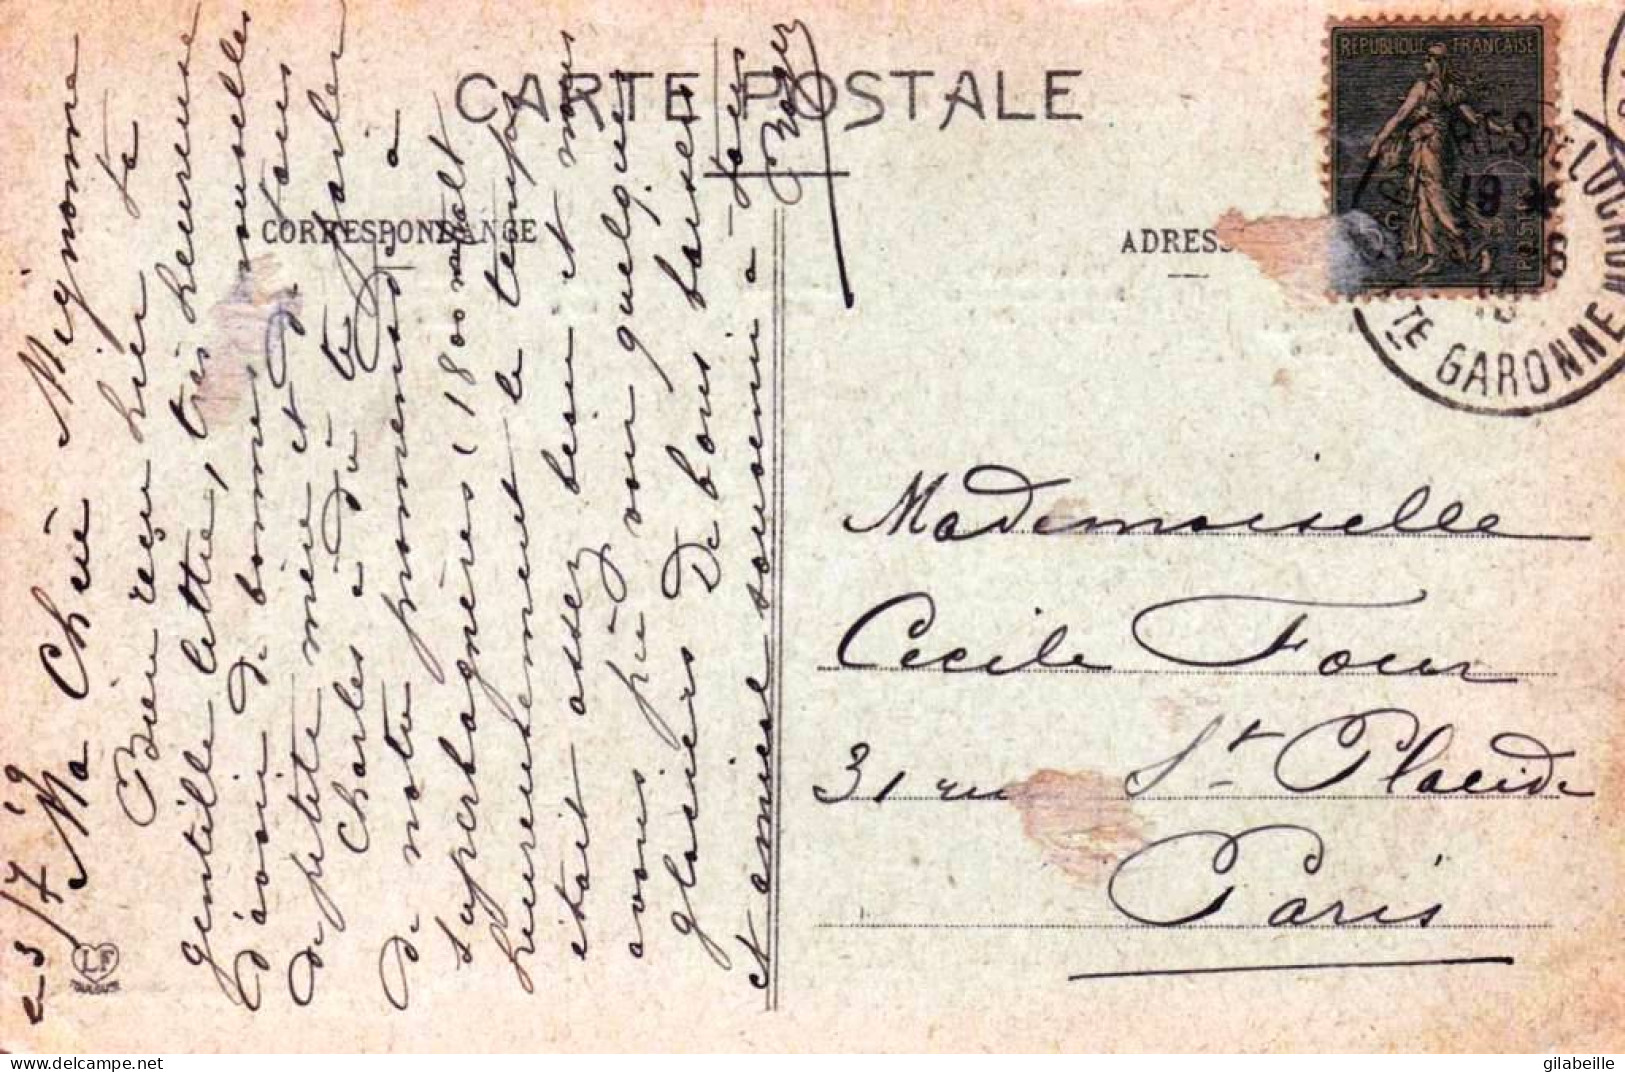 CARTE POSTALE
CORRESPONDANCE
ADRESS
RÉPUBLIQUE FRANÇAISE
POSTES
RES DE LUCHON
19 *
TE GARONNE
LF
3/7 19
Ma Chère Mignonne
Bien reçu hier ta
gentille lettre, très heureuse
d'avoir de bonnes nouvelles
de petite mère et de tous
Charles a dû te parler
de notre promenade à
Superbagnères (1800 m d'alt
heureusement le temps
était assez beau et nous
avons pu voir quelques
glaciers De bons baisers
et amical souvenir à tous
Roger
Mademoiselle
Cecile Four
31 rue St Placide
Paris
gilabeille